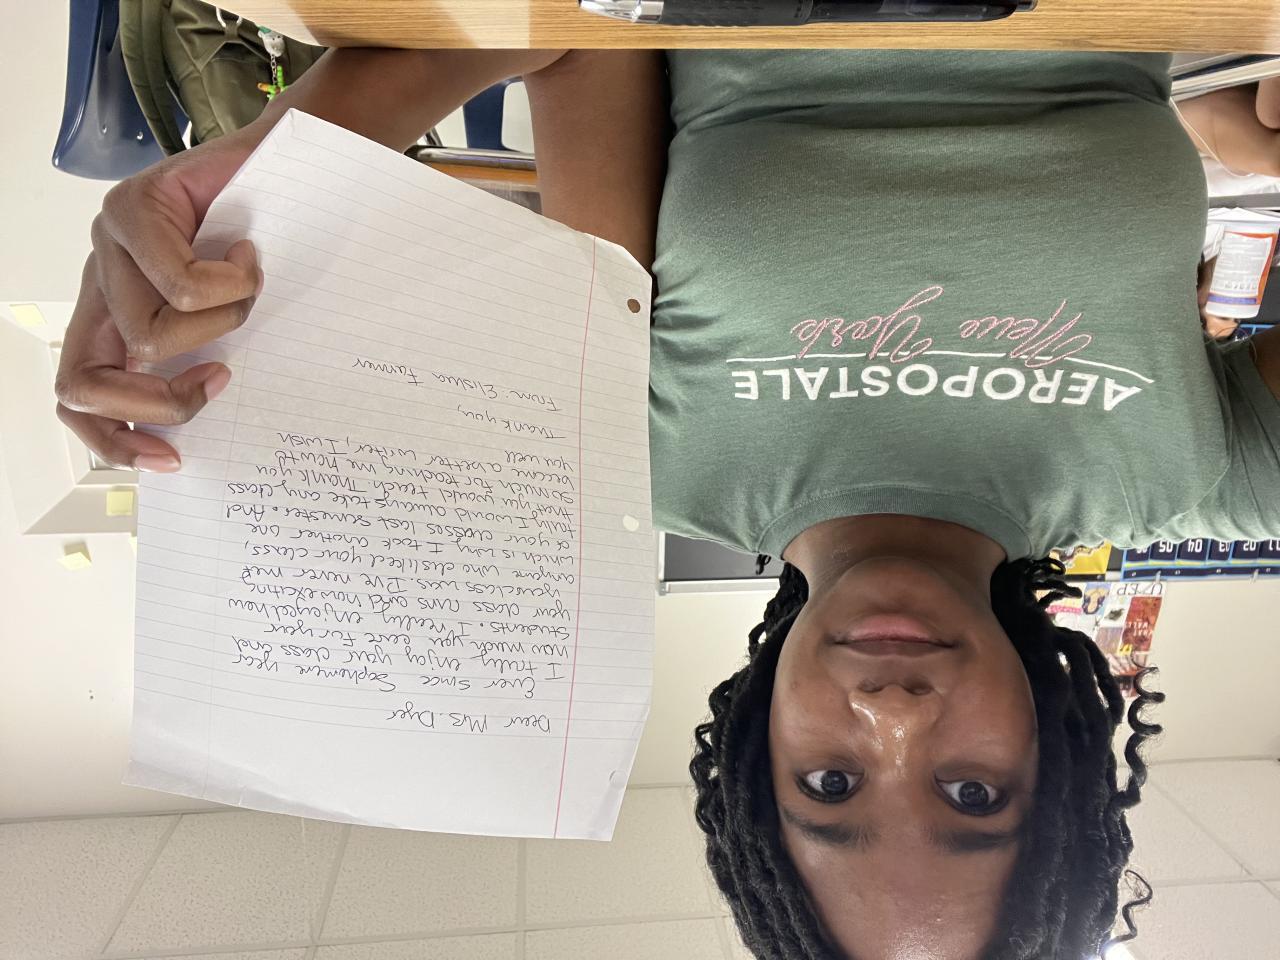 Dear Mrs. Dyer
Ever since Sophomore year
I truly enjoy your class and
how much you care for your
students. I really enjoyed how
your class runs and how exciting
your class was. I've never met
anyone who disliked your class,
which is why I took another one
of your classes last semester. And
truly I would always take any class
that you would teach. Thank you
so much for teaching me how to
become a better writer, I wish
you well
Thank you,
From: Elishea Farmer
AEROPOSTALE
New York
01 02 03 04 05